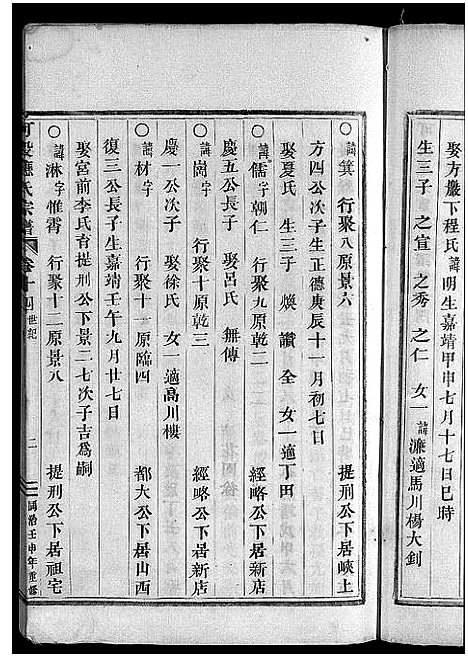 娶方巖下程氏 諱明生嘉靖甲申七月十七日巳時
生三子 之宣 之秀 之仁 女一 諱濂適馬川楊大釗
○諱箕 行聚八原景六 提刑公下居峽上
方四公次子生正德庚辰十一月初七日
娶夏氏 生三子 煥 讚 全 女一適丁田
○諱儒字朝仁 行聚九原乾二 經略公下居新店
慶五公長子 娶呂氏 無傳
○諱崗字 行聚十原乾三 經略公下居新店
慶一公次子 娶徐氏 女一適高川樓
○諱材字 行聚十一原臨四 都大公下居山西
復三公長子生嘉靖壬午九月廿七日
娶宮前李氏育提刑公下景二七次子吉爲嗣
○諱淋字惟霄 行聚十二原景八 提刑公下居祖宅
應氏宗譜 卷十四 世記 二 同治壬申年重修